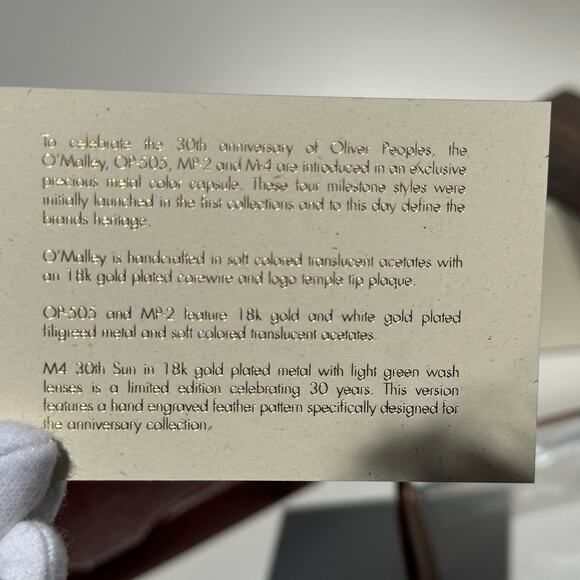 To celebrate the 30th anniversary of Oliver Peoples, the
O'Malley, OP-505, MP-2 and M-4 are introduced in an exclusive
precious metal color capsule. These four milestone styles were
initially launched in the first collections and to this day define the
brands heritage.
O'Malley is handcrafted in soft colored translucent acetates with
an 18k gold plated corewire and logo temple tip plaque.
OP-505 and MP-2 feature 18k gold and white gold plated
filigreed metal and soft colored translucent acetates.
M4 30th Sun in 18k gold plated metal with light green wash
lenses is a limited edition celebrating 30 years. This version
features a hand engraved feather pattern specifically designed for
the anniversary collection.